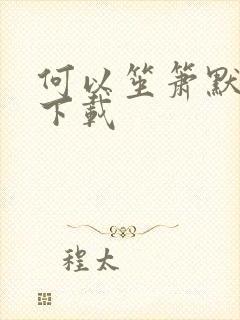 何以笙箫默
下载
程太